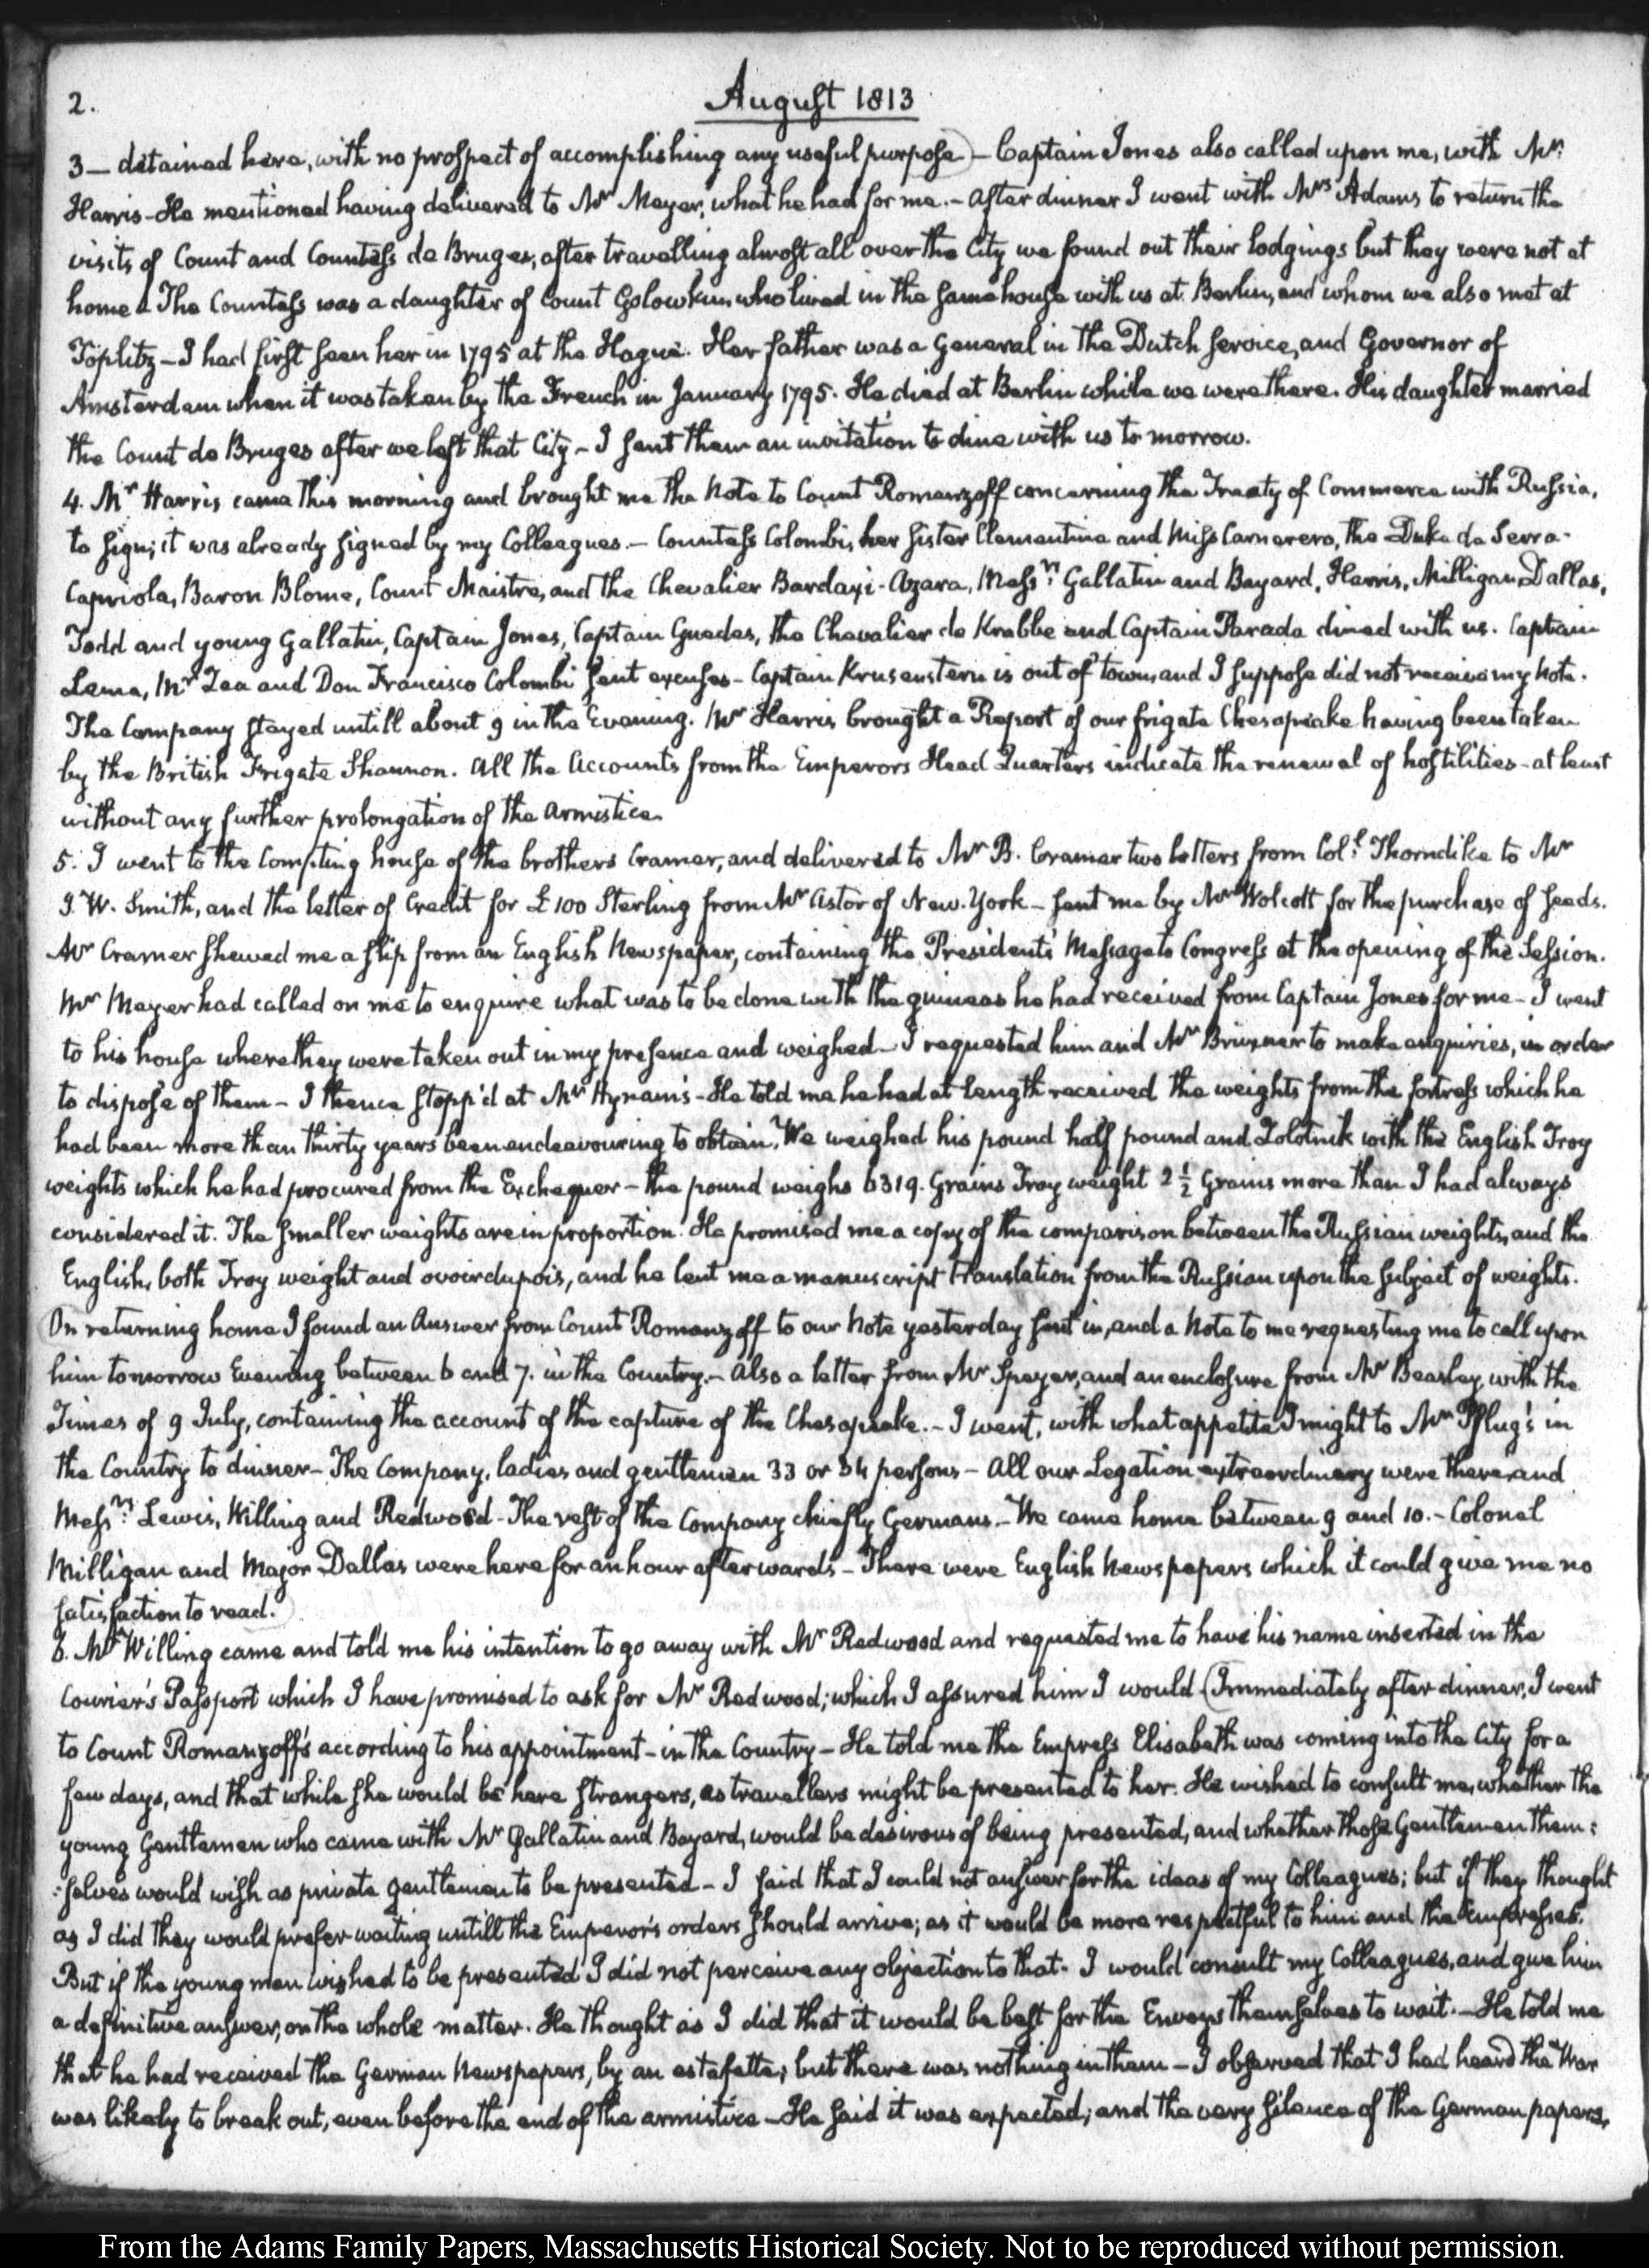 2.
August 1813
3 — detained here, with no prospect of accomplishing any useful purpose) — Captain Jones also called upon me, with Mr:
Harris – He mentioned having delivered to Mr Meyer, what he had for me. – After dinner I went with Mrs Adams to return the
visits of Count and Countess de Bruges, after travelling almost all over the City we found out their lodgings but they were not at
home – The Countess was a daughter of Count Golowkin who lived in the same house with us at Berlin, and whom we also met at
Töplitz – I had first seen her in 1795 at the Hague. Her father was a General in the Dutch service, and Governor of
Amsterdam when it was taken by the French in January 1795. He died at Berlin while we were there. His daughter married
the Count de Bruges after we left that City – I sent them an invitation to dine with us to morrow.
4. Mr Harris came this morning and brought me the Note to Count Romanzoff concerning the Treaty of Commerce with Russia,
to sign; it was already signed by my Colleagues. – Countess Colombi, her sister Clementina and Miss Carnerero, the Duke de Serra-
Capriola, Baron Blome, Count Maistre, and the Chevalier Bardaxi-Azara, Messrs: Gallatin and Bayard, Harris, Milligan, Dallas,
Todd and young Gallatin, Captain Jones, Captain Guedes, the Chevalier de Krabbe and Captain Parada dined with us. Captain
Lema, Mr Zea and Don Francisco Colombi sent excuses – Captain Krusenstern is out of town, and I suppose did not receive my Note.
The Company stayed untill about 9 in the Evening. Mr Harris brought a Report of our frigate Chesapeake having been taken
by the British Frigate Shannon. All the Accounts from the Emperors Head Quarters indicate the renewal of hostilities – at least
without any further prolongation of the armistice.
5. I went to the Compting house of the brothers Cramer, and delivered to Mr B. Cramer two letters from Coll: Thorndike to Mr
J. W. Smith, and the letter of Credit for £100 Sterling from Mr Astor of New-York – sent me by Mr Wolcott for the purchase of seeds.
Mr Cramer shewed me a slip from an English Newspaper, containing the President's Message to Congress at the opening of the Session.
Mr Meyer had called on me to enquire what was to be done with the guineas he had received from Captain Jones for me – I went
to his house where they were taken out in my presence and weighed – I requested him and Mr Brüxner to make enquiries, in order
to dispose of them – I thence stopp'd at Mr Hynam's – He told me he had at length received the weights from the fortress which he
had been more than thirty years been endeavouring to obtain. We weighed his pound half pound and Zolotnik with the English Troy
weights which he had procured from the Exchequer – the pound weighs 6319. Grains Troy weight 2 ½ Grains more than I had always
considered it. The smaller weights are in proportion. He promised me a copy of the comparison between the Russian weights, and the
English, both Troy weight and avoirdupois, and he lent me a manuscript translation from the Russian upon the subject of weights.
(On returning home I found an Answer from Count Romanzoff to our Note yesterday sent in, and a Note to me requesting me to call upon
him tomorrow Evening between 6 and 7. in the Country. – Also a letter from Mr Speyer, and an enclosure from Mr Beasley, with the
Times of 9 July, containing the account of the capture of the Chesapeake. – I went, with what appetite I might to Mr Pflug's in
the Country to dinner – The Company, ladies and gentlemen 33 or 34 persons – All our Legation extraordinary were there, and
Messrs: Lewis, Willing and Redwood – The rest of the Company chiefly Germans. – We came home between 9 and 10. – Colonel
Milligan and Major Dallas were here for an hour afterwards – There were English Newspapers which it could give me no
satisfaction to read.)
6. Mr Willing came and told me his intention to go away with Mr Redwood and requested me to have his name inserted in the
Courier's Passport which I have promised to ask for Mr Redwood; which I assured him I would (Immediately after dinner, I went
to Count Romanzoff's according to his appointment – in the Country – He told me the Empress Elisabeth was coming into the City for a
few days, and that while she would be here strangers, as travellers might be presented to her. He wished to consult me, whether the
young Gentlemen who came with Mr Gallatin and Bayard, would be desirous of being presented, and whether those Gentlemen them:
:selves would wish as private gentlemen to be presented – I said that I could not answer for the ideas of my Colleagues; but if they thought
as I did they would prefer waiting untill the Emperor's orders should arrive; as it would be more respectful to him and the Empresses.
But if the young men wished to be presented I did not perceive any objection to that. I would consult my Colleagues, and give him
a definitive answer, on the whole matter. He thought as I did that it would be best for the Envoys themselves to wait. – He told me
that he had received the German Newspapers, by an estafette; but there was nothing in them – I observed that I had heard the War
was likely to break out, even before the end of the armistice – He said it was expected; and the very silence of the German papers,
From the Adams Family Papers, Massachusetts Historical Society. Not to be reproduced without permission.